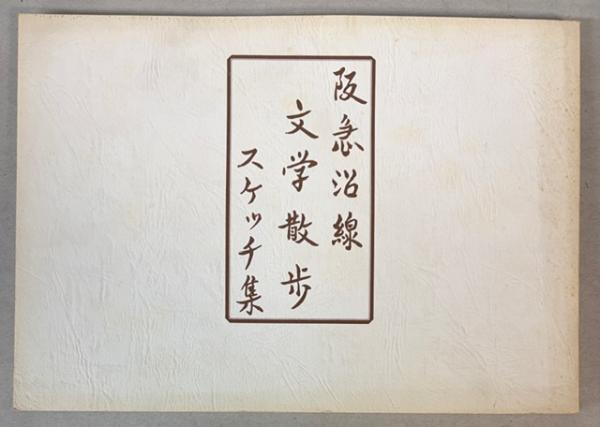 阪急沿線
文学散歩
スケッチ集